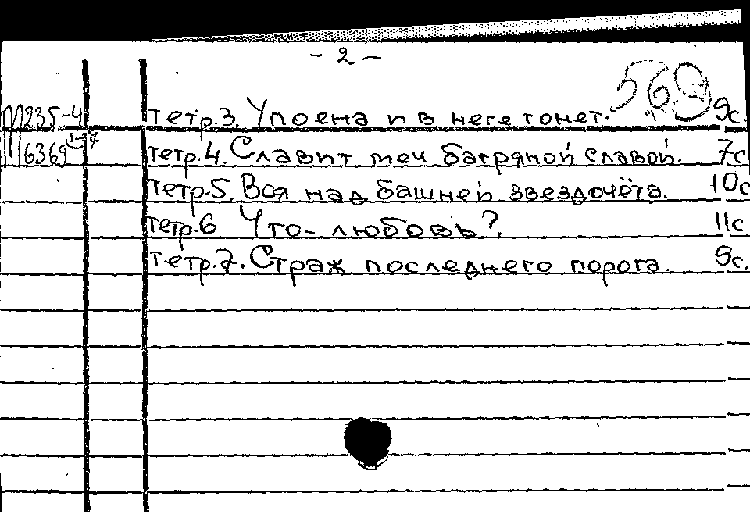 - 2 -
569
М235-4 тетр.3. Упоена и в неге тонет. 9с.
6369 1-7 тетр.4. Славит меч багряной славой. 7с
тетр.5. Вся над башней звездочёта. 10с
тетр.6 Что-любовь? 11с
тетр.7. Страж последнего порога. 9с.